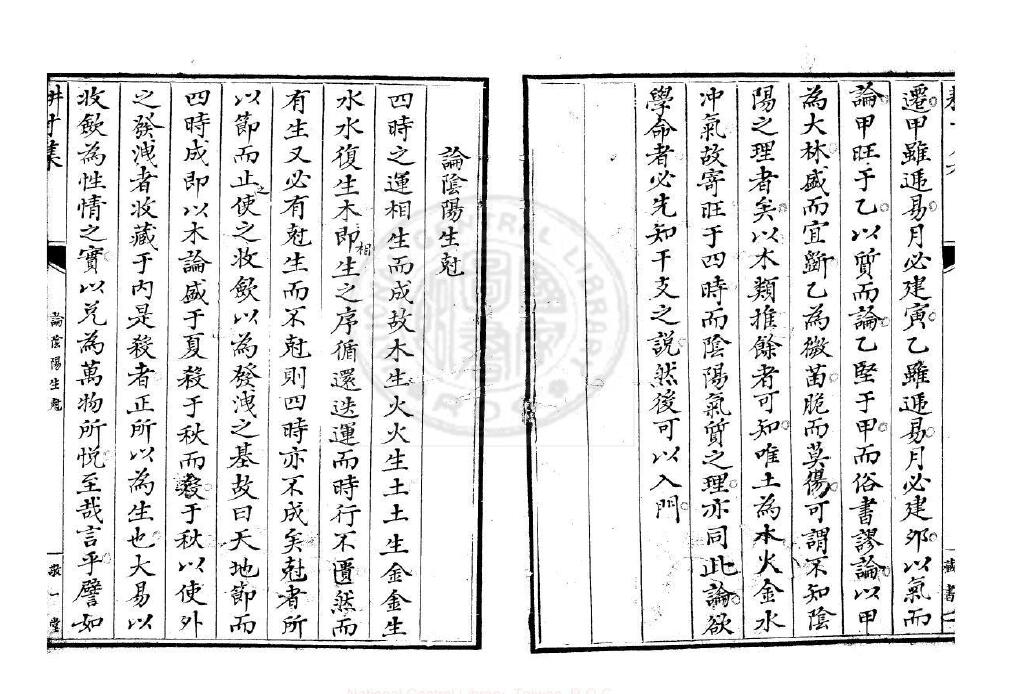 遷甲雖遞易月必建寅乙雖遞易月必建卯以氣而
論甲旺于乙以質而論乙堅于甲而俗書謬論以甲
為大林盛而宜斷乙為微苗脆而莫傷可謂不知陰
陽之理者矣以木類推餘者可知唯土為木火金水
冲氣故寄旺于四時而陰陽氣質之理亦同此論欲
學命者必先知干支之說然後可以入門
論陰陽生尅
四時之運相生而成故木生火火生土土生金金生
水水復生木即相生之序循還迭運而時行不匱然而
有生又必有尅生而不尅則四時亦不成矣尅者所
以節而止之使之收歛以為發洩之基故曰天地節而
四時成即以木論盛于夏殺于秋而殺于秋以使外
之發洩者收藏于內是殺者正所以為生也大易以
收歛為性情之實以兌為萬物所悅至哉言乎譬如
論陰陽生尅
敬一堂
藏書
National Central Library, Taiwan, R.O.C.